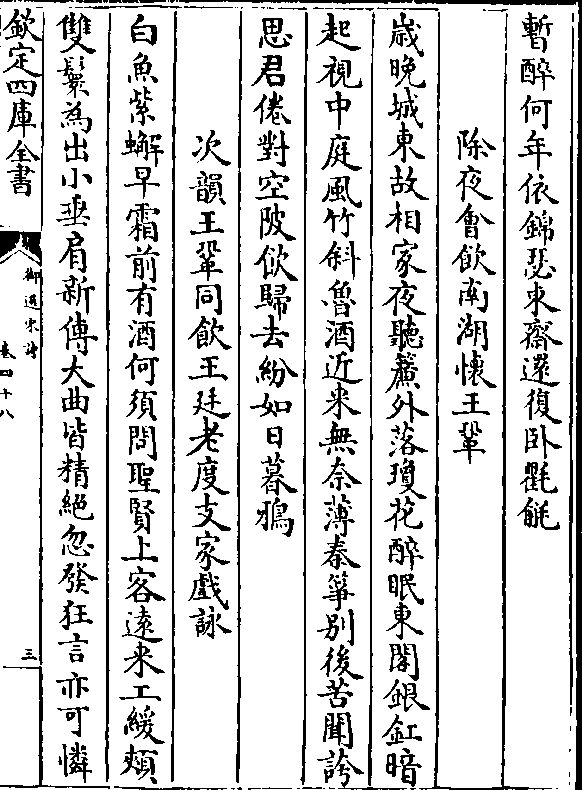 暫醉何年依錦瑟東齋還復卧氍毹
除夜會飲南湖懷王鞏
歲晚城東故相家夜聽簾外落瓊花醉眠東閣銀釭暗
起視中庭風竹斜魯酒近来無奈薄秦箏別後苦聞誇
思君倦對空陂飲歸去紛如日暮鴉
次韻王鞏同飲王廷老度支家戲詠
白魚紫蠏早霜前有酒何須問聖賢上客遠来工緩頰
雙鬟為出小垂肩新傳大曲皆精絕忽發狂言亦可憐
欽定四庫全書
御選宋詩
卷四十八
三